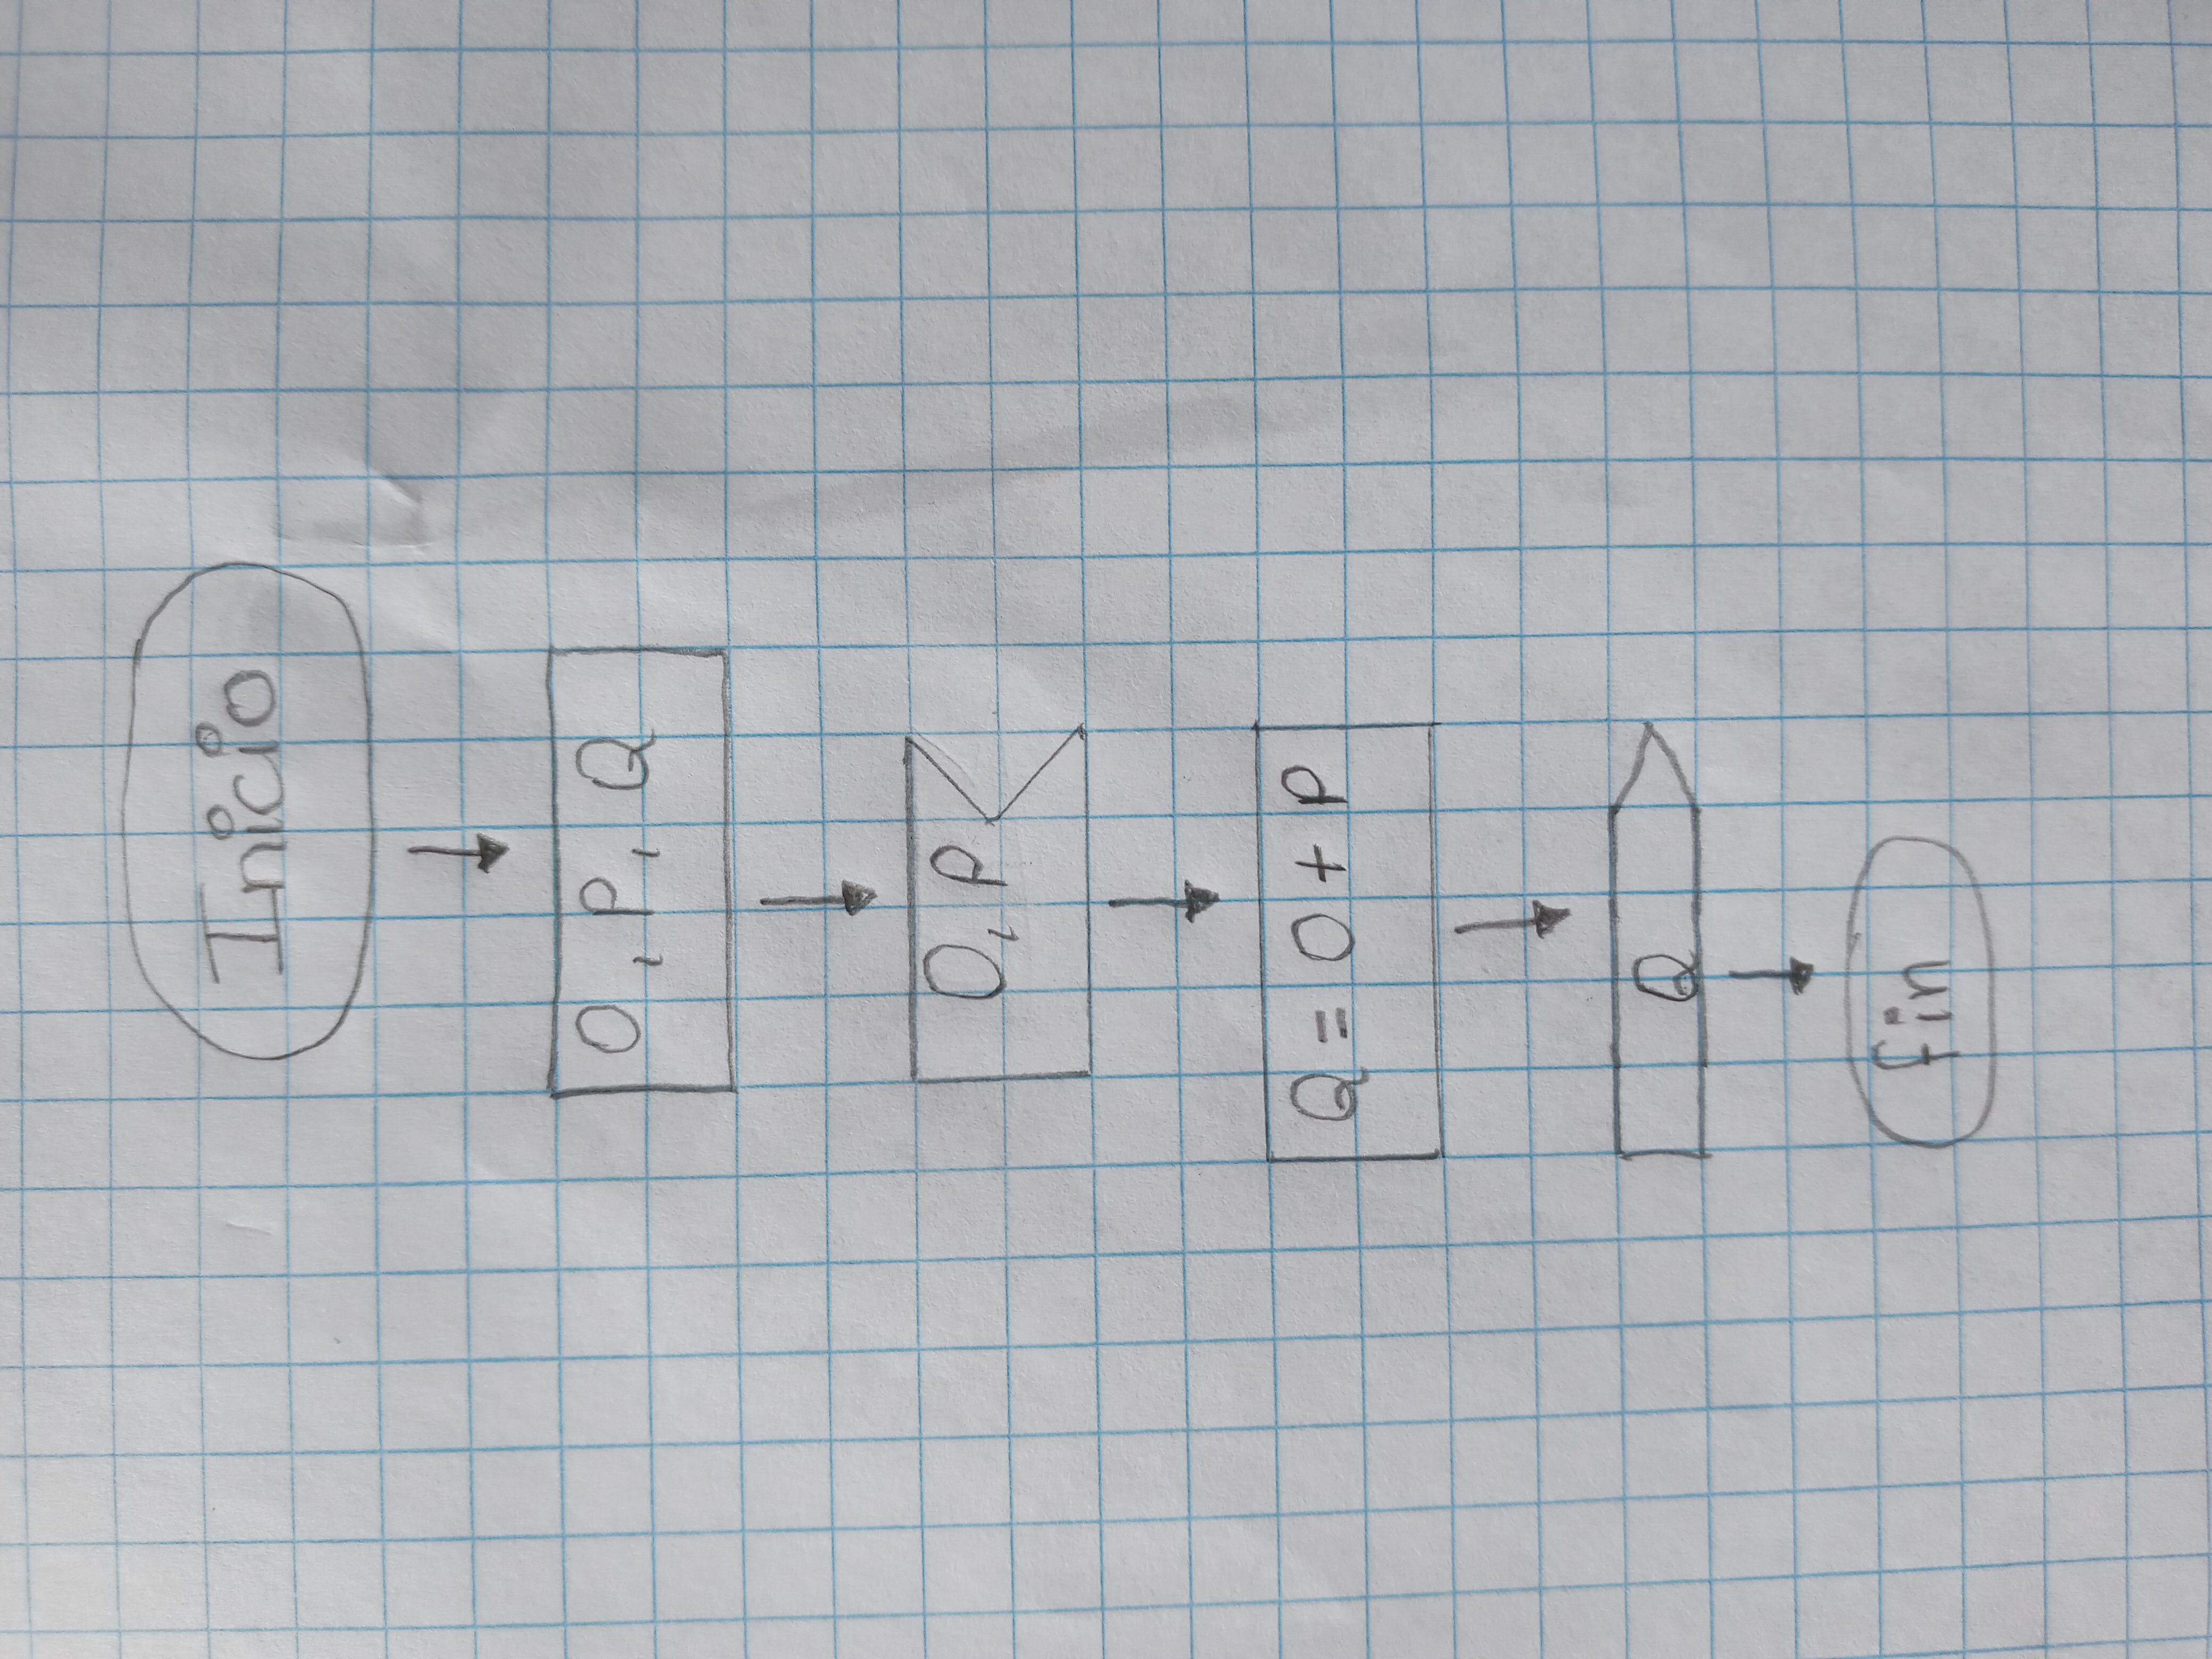 Inicio
O, P, Q
O, P
Q = O + P
Q
fin